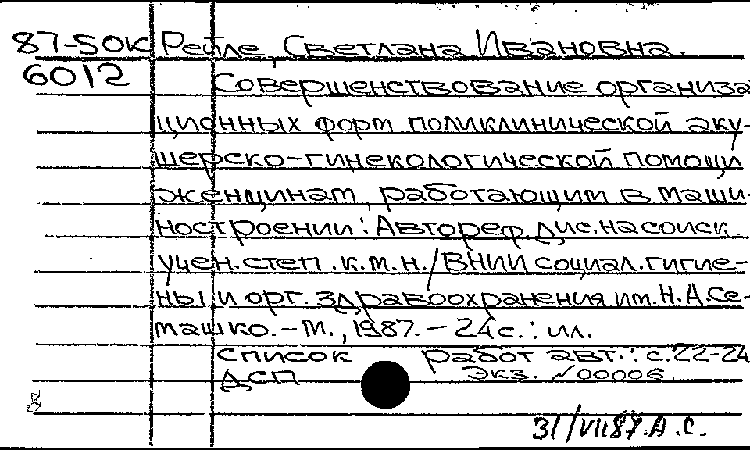 87-50К Рейле, Светлана Ивановна.
6012 Совершенствование организа
ционных форм поликлинической аку-
шерско-гинекологической помощи
женщинам, работающим в маши-
ностроении: Автореф. дис. на соиск.
учен. степ. к.м.н. / ВНИИ социал. гигие-
ны и орг. здравоохранения им. Н.А.Се-
машко. - М., 1987. - 24с.: ил.
Список работ авт.: с.22-24
ДСП Экз. №00006
31/VII87. А.С.